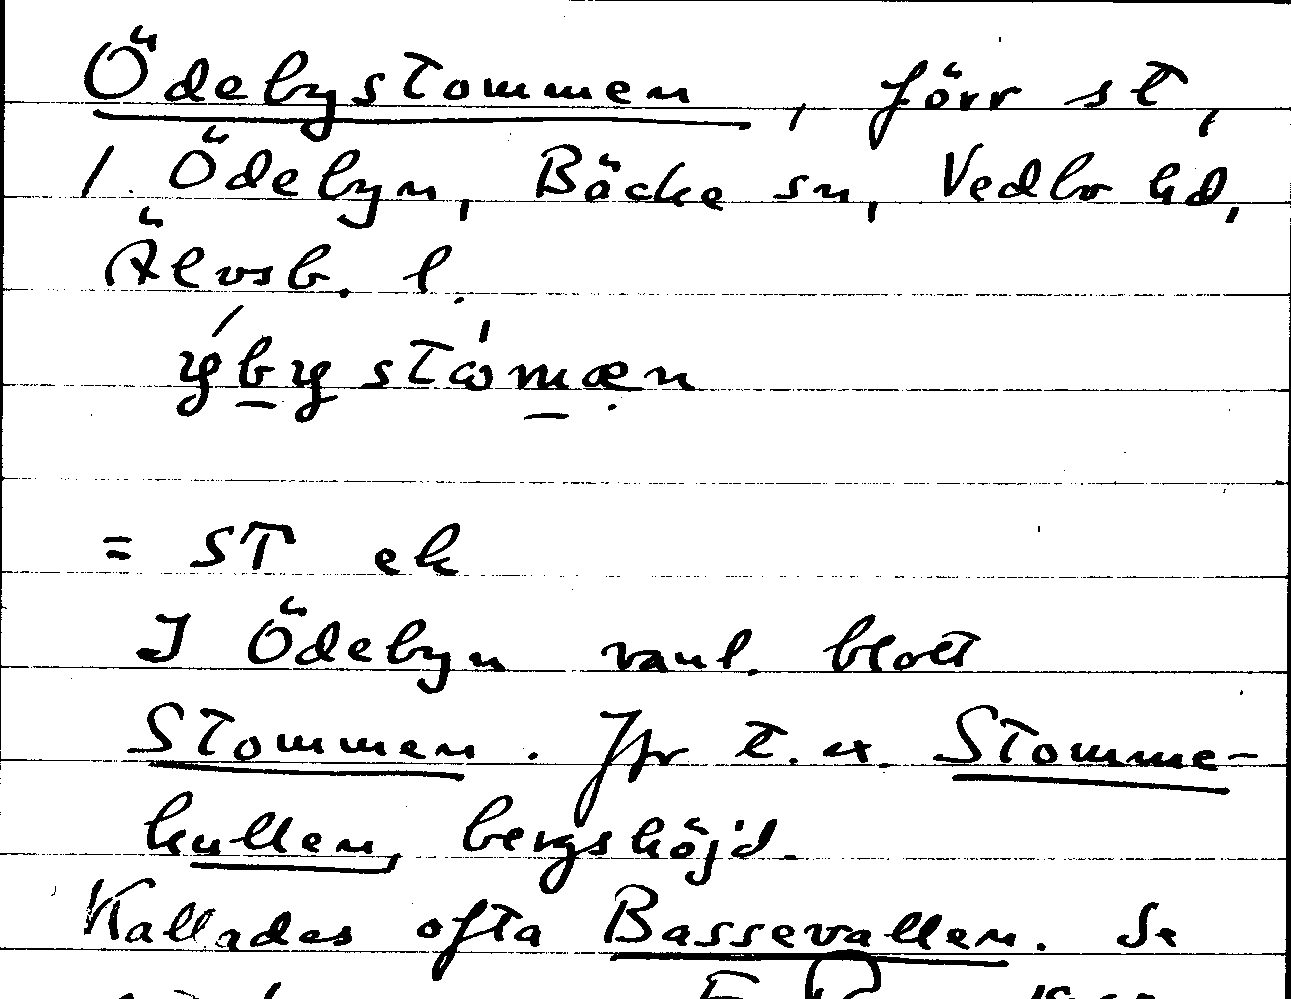 Ödebystommen, förr st,
i Ödebyn, Bäcke sn, Vedbo hd,
Älvsb. l.
ýbystòmæn
= ST ek
I Ödebyn vanl. blott
Stommen. Jfr t.ex. Stomme-
kullen, bergshöjd.
Kallades ofta Bassevallen. Se